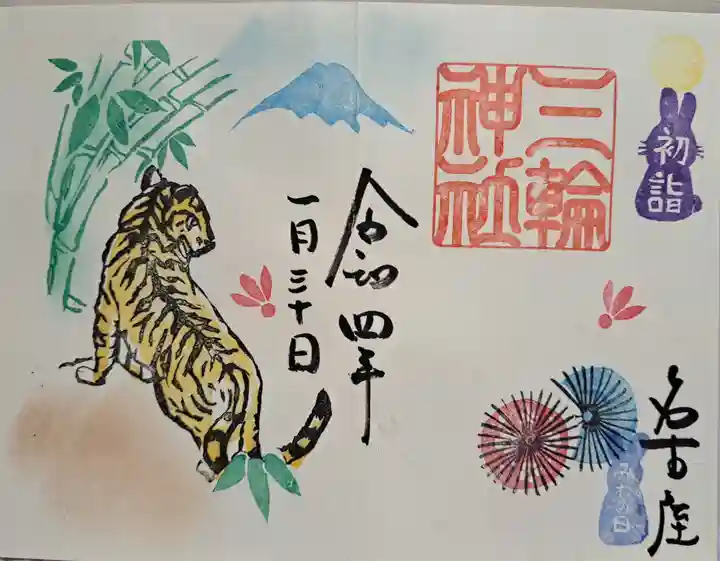 初詣
三輪
神社
名古屋
みその日
令和四年
一月三十日